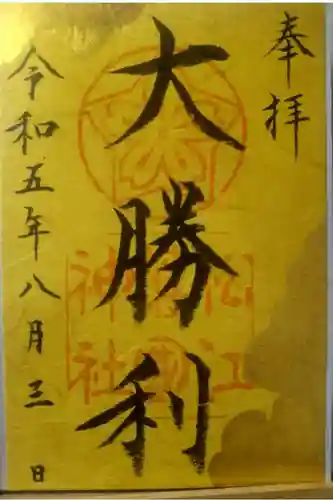 奉拝
大勝利
令和五年八月三日
松江
神社